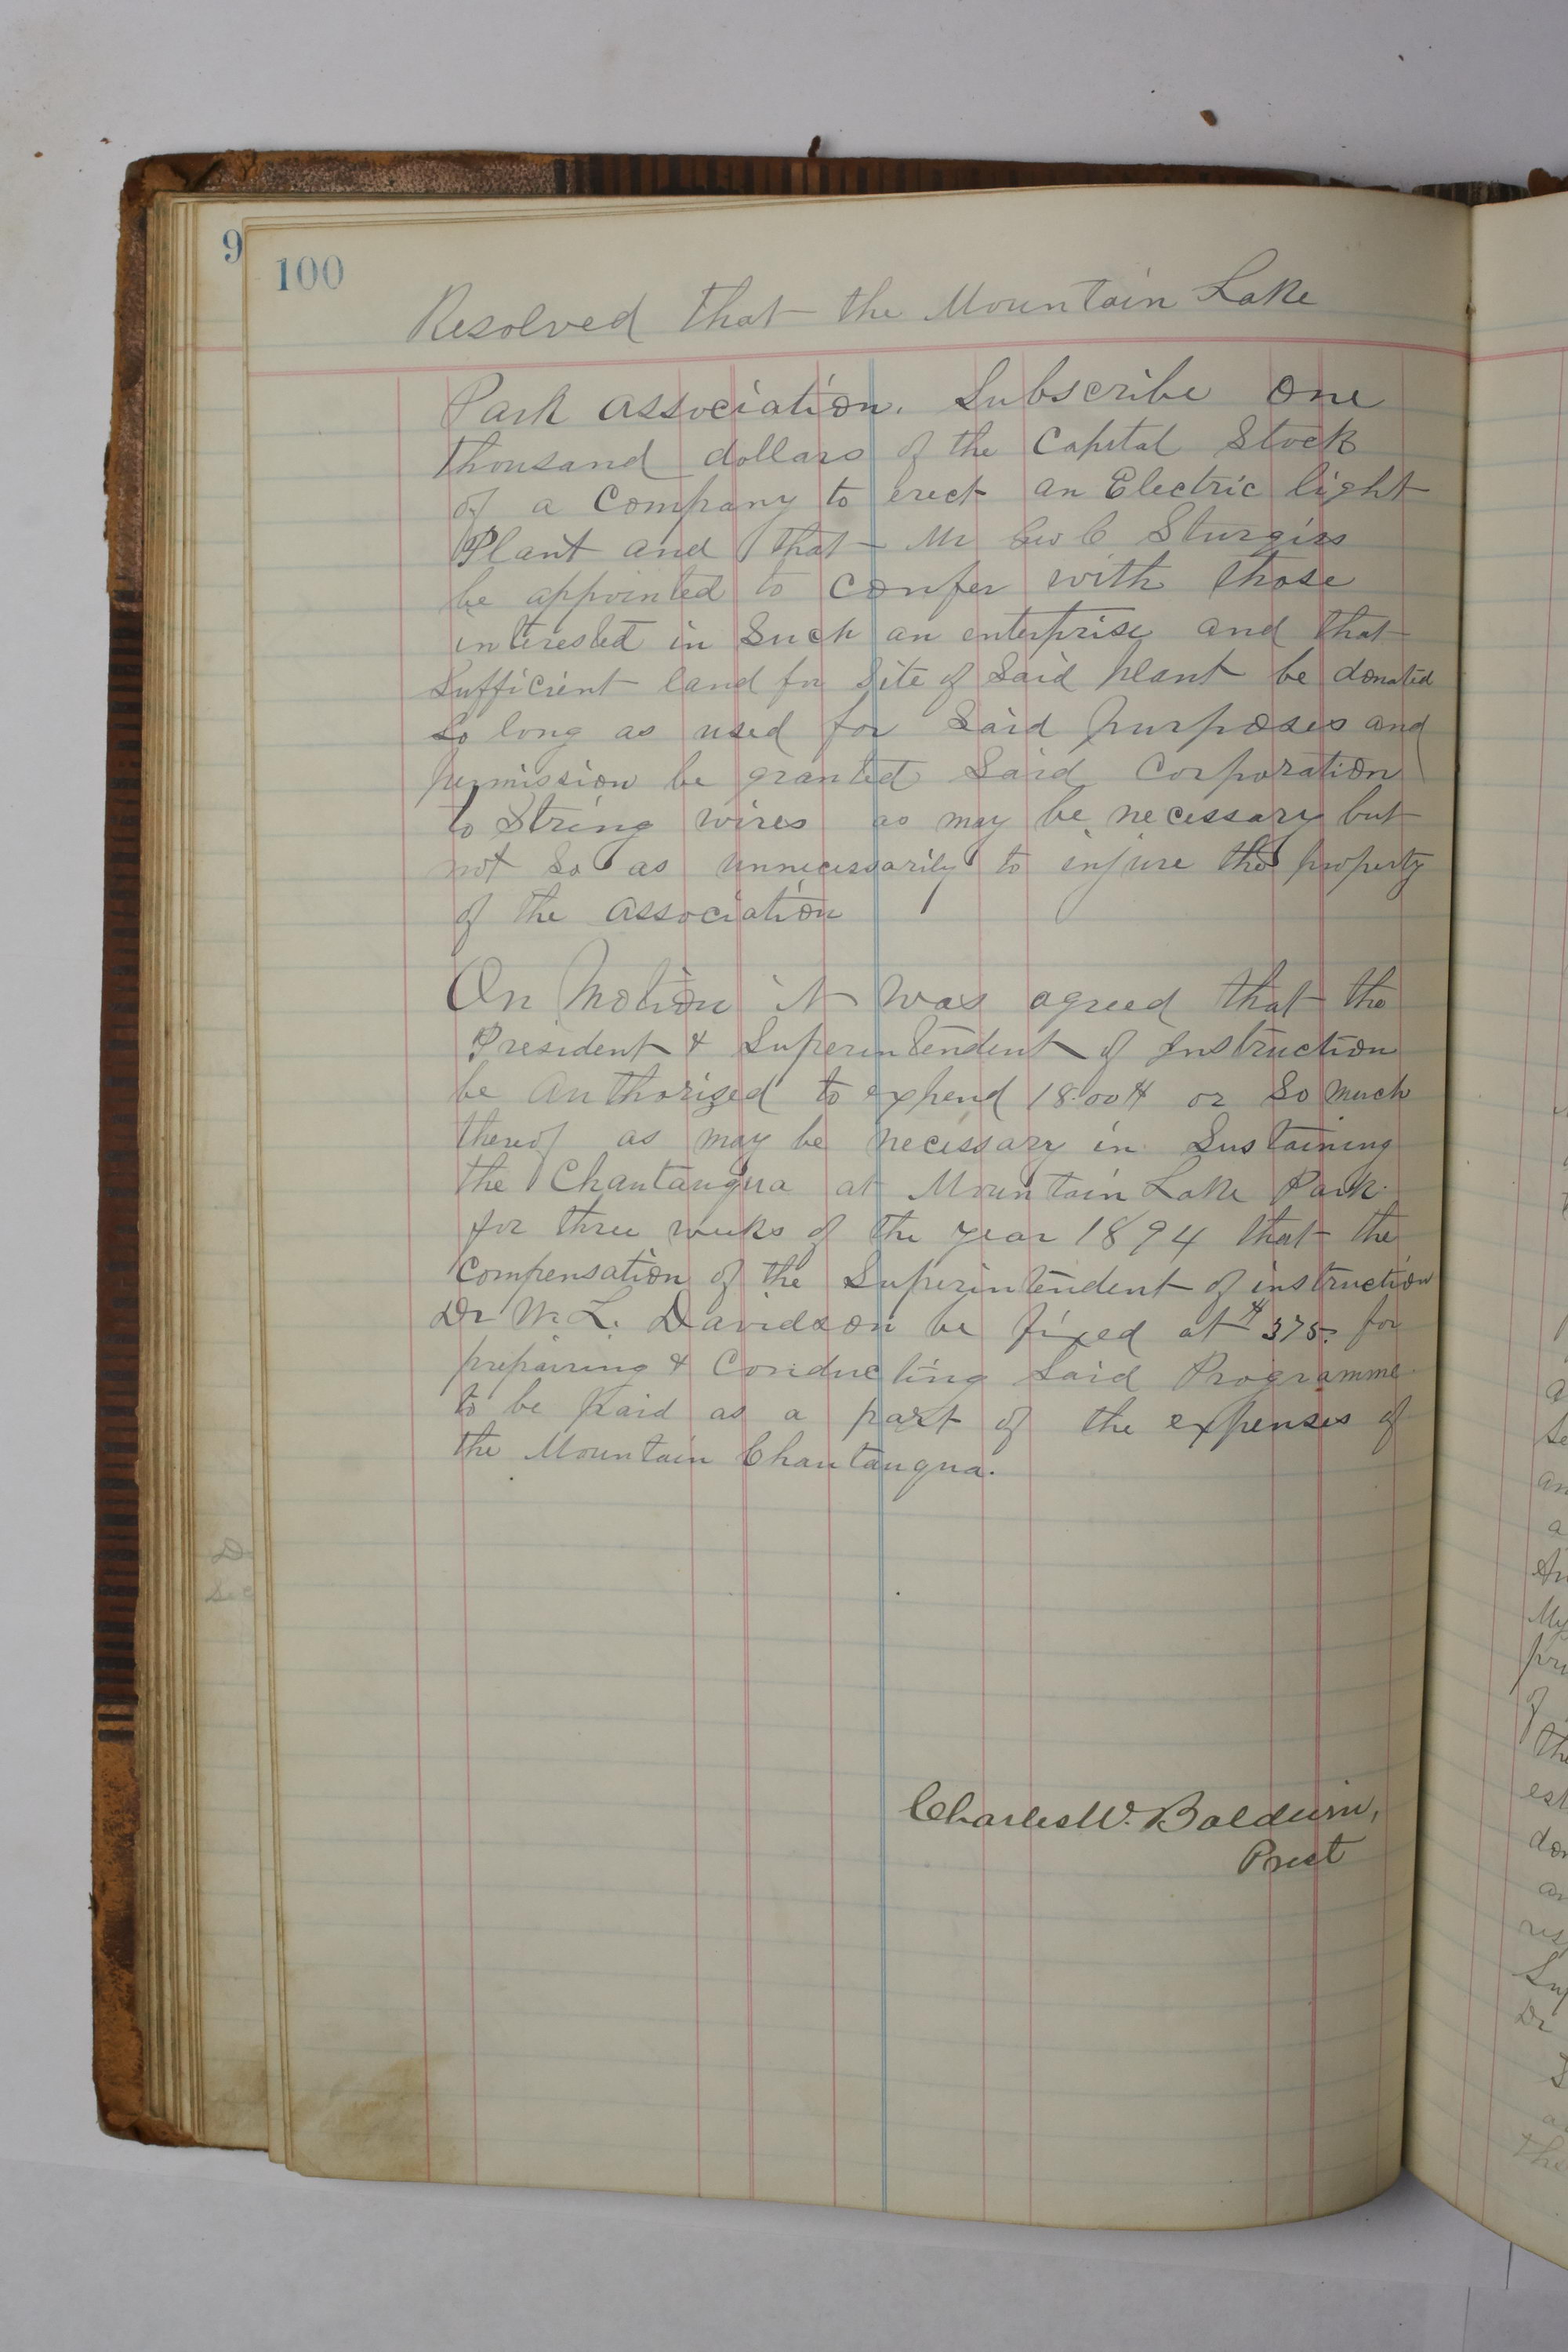 9
100
Resolved that the Mountain Lake
Park association. Subscribe one
thousand dollars of the Capital Stock
of a Company to erect an Electric light
Plant and that Mr Geo C Sturgiss
be appointed to confer with those
interested in Such an enterprise and that
Sufficient land for Site of Said plant be donated
So long as used for Said purposes and
permission be granted Said Corporation
to String wires as may be necessary but
not So as unnecessarily to injure the property
of the association
On Motion it was agreed that the
President & Superintendent of Instruction
be Authorized to expend 1800$ or So much
thereof as may be necessary in Sustaining
the Chautauqua at Mountain Lake Park
for three weeks of the year 1894 that the
Compensation of the Superintendent of instruction
Dr W. L. Davidson be fixed at $375. for
prepairing & Conducting Said Programme
to be paid as a part of the expenses of
the Mountain Chautauqua.
Charles W. Baldwin,
Prest